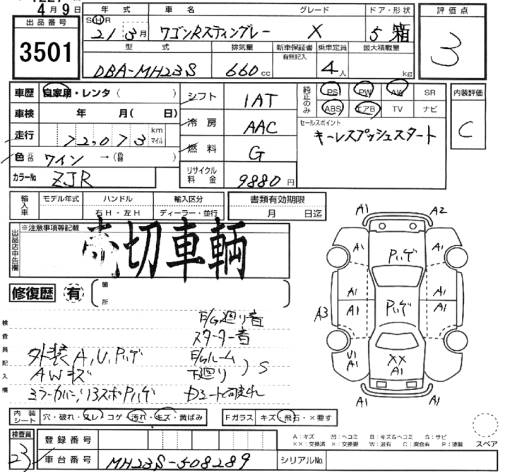 4月9日
出品番号 3501
年式 車名 グレード ドア・形状
21年3月 ワゴンRスティングレー X 5 箱
型式 排気量 新車保証書 有無記入 乗車定員 最大積載量
DBA-MH23S 660cc 4人 kg
評価点 3
車歴 自家用・レンタ( )
車検 年 月( 日)
走行 72,073 km マイル
色 ワイン →( )
カラーNo ZJR
シフト 1AT
冷房 AAC
燃料 G
リサイクル料金 9880円
純正のみ PS PW AW SR
ABS エアB TV ナビ
セールスポイント
キーレスプッシュスタート
内装評価 C
輸入車 モデル年式 ハンドル 右H・左H 輸入区分 ディーラー・並行
書類有効期限 月 日迄
出品店申告欄 ※注意事項等記載
売切車輌
修復歴 有 箇所
検査員記入欄
外装A,U,Pハゲ
AWキズ
E/Gルーム
下廻り S
内装シート 穴・破れ・スレ・コゲ 汚れ・キズ・黄ばみ
Fガラス キズ・飛石・×要す
検査員 23
登録番号
車台番号 MH23S-508289
シリアルNo
A1 A2
Pハゲ
A1 A1
A3 A1 Pハゲ A1
U1 A1 XX A1
A1 A1
スペア